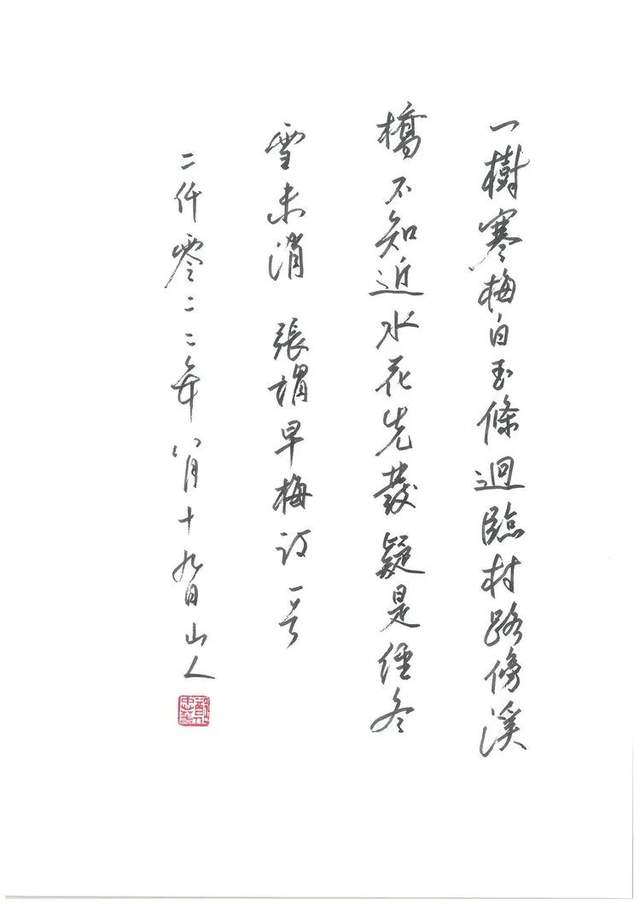 一樹寒梅白玉條迴臨村路傍溪
橋不知近水花先發疑是經冬
雪未消 張謂早梅詩一首
二仟零二二年八月十九日山人